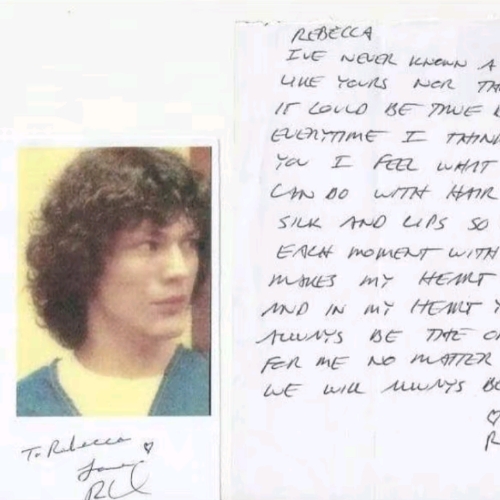 REBECCA
I'VE NEVER KNOWN A
LIKE YOURS NOR
IT COULD BE TRUE
EVERYTIME I THINK
YOU I FEEL WHAT
CAN DO WITH HAIR
SILK AND LIPS SO
EACH MOMENT WITH
MAKES MY HEART
AND IN MY HEART
ALWAYS BE THE
FOR ME NO MATTER
WE WILL ALWAYS
♡
R
To Rebecca
Love ♡